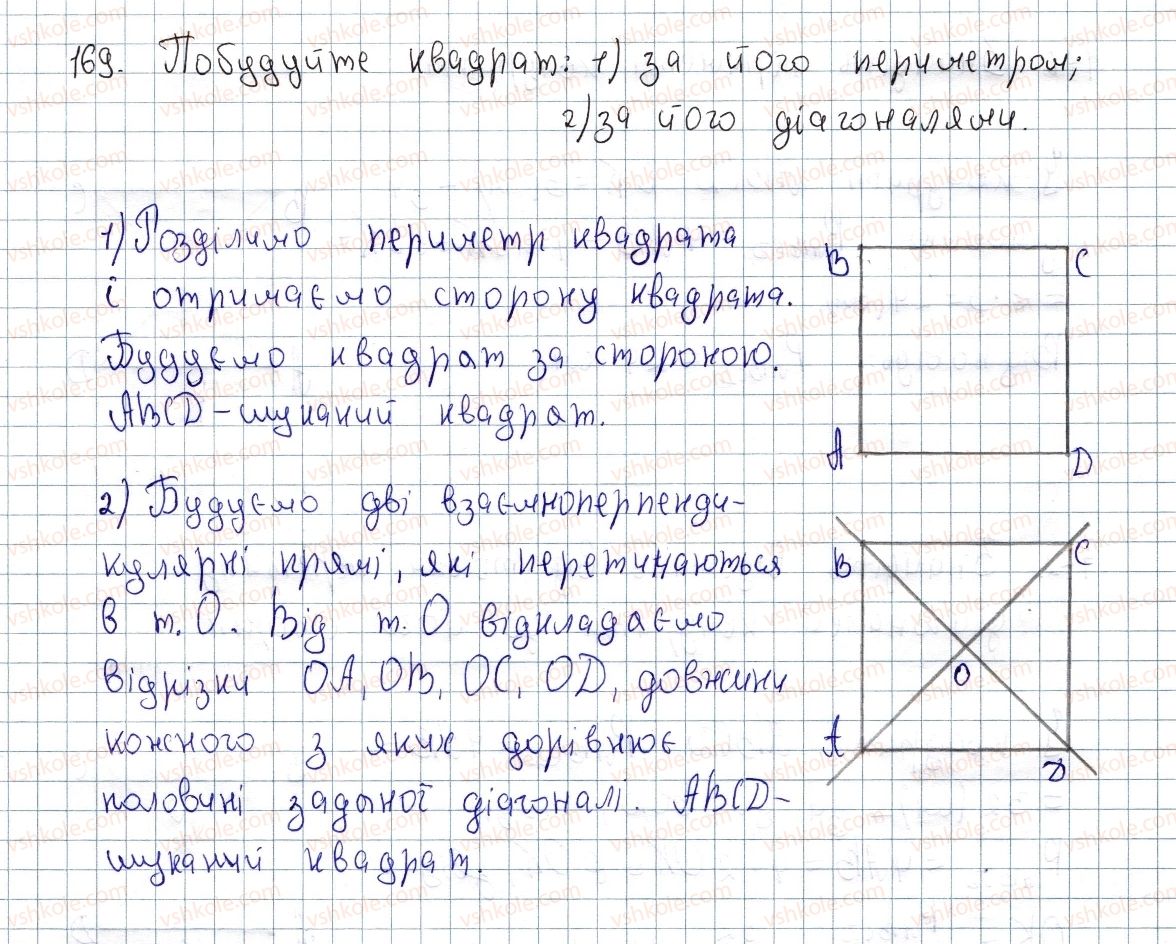 169. Побудуйте квадрат: 1) за його периметром;
2) за його діагоналями.
1) Розділимо периметр квадрата
і отримаємо сторону квадрата.
Будуємо квадрат за стороною.
ABCD - шуканий квадрат.
B C
A D
2) Будуємо дві взаємноперпенди-
кулярні прямі, які перетинаються
в т. О. Від т. О відкладаємо
відрізки OA, OB, OC, OD, довжини
кожного з яких дорівнює
половині заданої діагоналі. ABCD -
шуканий квадрат.
B C
O
A D
vshkole.com